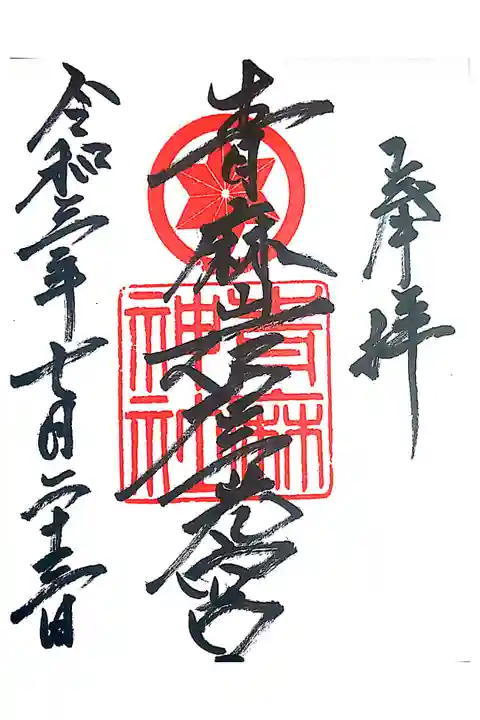 奉拝
青麻岩戸三光宮
青麻神社
令和三年七月二十三日